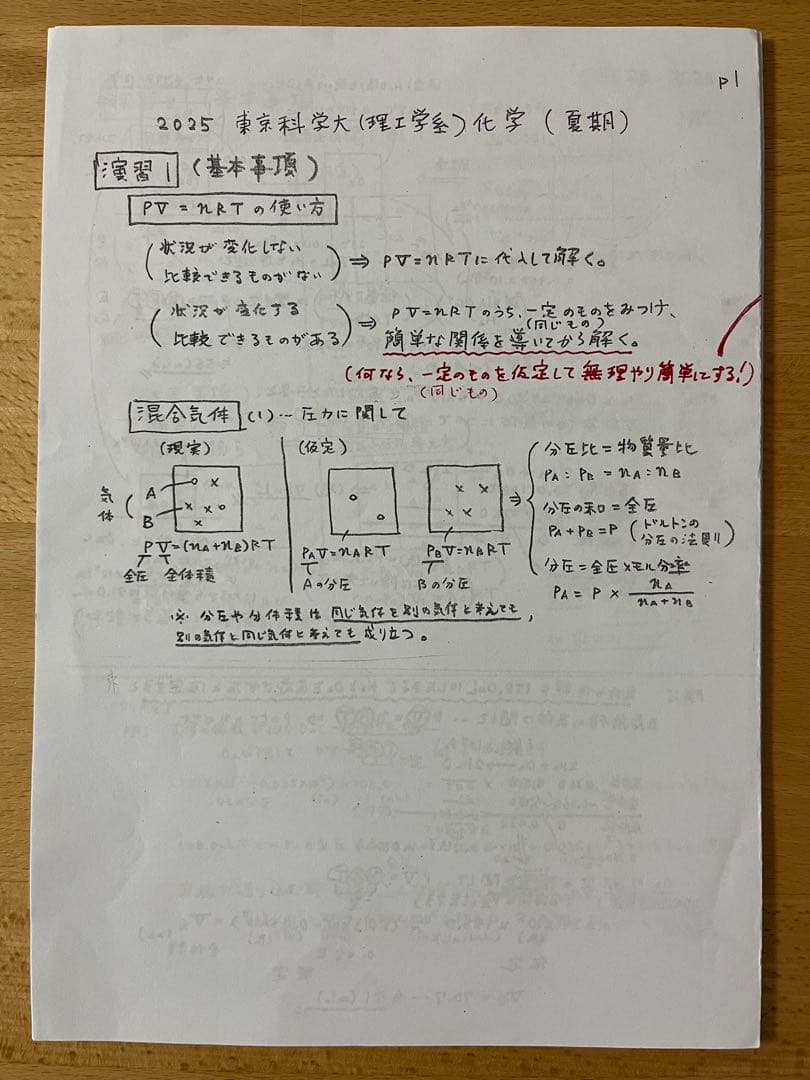 p1
2025 東京科学大(理工学系)化学 (夏期)
演習1 (基本事項)
PV=nRTの使い方
(状況が変化しない
比較できるものがない) ⇒ PV=nRTに代入して解く。
(状況が変化する
比較できるものがある) ⇒ PV=nRTのうち、一定のものをみつけ、
(同じもの)
簡単な関係を導いてから解く。
(何なら、一定のものを仮定して無理やり簡単にする!)
(同じもの)
混合気体 (1)…圧力に関して
(現実)
気体
A
B
PV=(nA+nB)RT
全圧 全体積
(仮定)
PAV=nART
Aの分圧
PBV=nBRT
Bの分圧
⇒
分圧比=物質量比
PA:PB=nA:nB
分圧の和=全圧
PA+PB=P (ドルトンの
分圧の法則)
分圧=全圧×モル分率
PA=P× nA/(nA+nB)
※ 分圧や分体積は同じ気体を別の気体と考えても,
別の気体と同じ気体と考えても成り立つ。